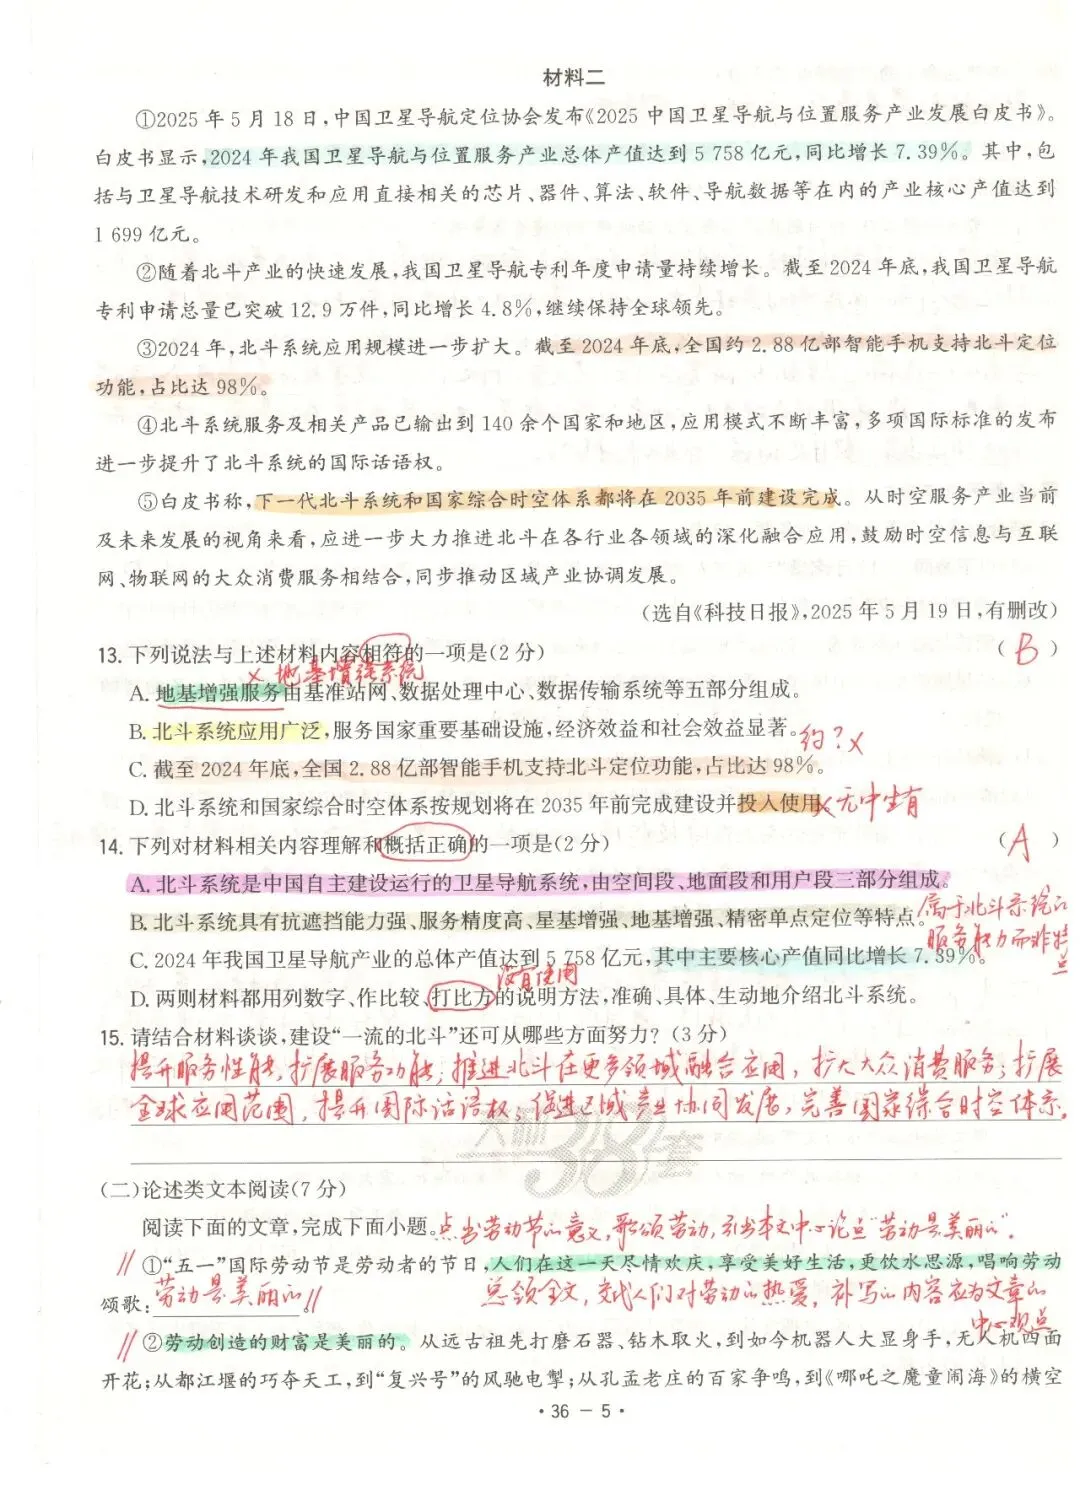 材料二
①2025年5月18日,中国卫星导航定位协会发布《2025中国卫星导航与位置服务产业发展白皮书》。
白皮书显示,2024年我国卫星导航与位置服务产业总体产值达到5 758亿元,同比增长7.39%。其中,包
括与卫星导航技术研发和应用直接相关的芯片、器件、算法、软件、导航数据等在内的产业核心产值达到
1 699亿元。
②随着北斗产业的快速发展,我国卫星导航专利年度申请量持续增长。截至2024年底,我国卫星导航
专利申请总量已突破12.9万件,同比增长4.8%,继续保持全球领先。
③2024年,北斗系统应用规模进一步扩大。截至2024年底,全国约2.88亿部智能手机支持北斗定位
功能,占比达98%。
④北斗系统服务及相关产品已输出到140余个国家和地区,应用模式不断丰富,多项国际标准的发布
进一步提升了北斗系统的国际话语权。
⑤白皮书称,下一代北斗系统和国家综合时空体系都将在2035年前建设完成。从时空服务产业当前
及未来发展的视角来看,应进一步大力推进北斗在各行业各领域的深化融合应用,鼓励时空信息与互联
网、物联网的大众消费服务相结合,同步推动区域产业协调发展。
(选自《科技日报》,2025年5月19日,有删改)
13.下列说法与上述材料内容相符的一项是(2分) ( B )
× 地基增强系统
A.地基增强服务由基准站网、数据处理中心、数据传输系统等五部分组成。
B.北斗系统应用广泛,服务国家重要基础设施,经济效益和社会效益显著。
约?×
C.截至2024年底,全国2.88亿部智能手机支持北斗定位功能,占比达98%。
D.北斗系统和国家综合时空体系按规划将在2035年前完成建设并投入使用。× 无中生有
14.下列对材料相关内容理解和概括正确的一项是(2分) ( A )
A.北斗系统是中国自主建设运行的卫星导航系统,由空间段、地面段和用户段三部分组成。
B.北斗系统具有抗遮挡能力强、服务精度高、星基增强、地基增强、精密单点定位等特点。
属于北斗系统的
服务能力而非特点
C.2024年我国卫星导航产业的总体产值达到5 758亿元,其中主要核心产值同比增长7.39%。
没有使用
D.两则材料都用列数字、作比较、打比方的说明方法,准确、具体、生动地介绍北斗系统。
15.请结合材料谈谈,建设“一流的北斗”还可从哪些方面努力?(3分)
提升服务性能,扩展服务功能,推进北斗在更多领域融合应用,扩大大众消费服务;扩展
全球应用范围,提升国际话语权;促进区域产业协同发展,完善国家综合时空体系。
天利38套
(二)论述类文本阅读(7分)
阅读下面的文章,完成下面小题。点出劳动节的意义,歌颂劳动,引出本文中心论点“劳动是美丽的”。
①“五一”国际劳动节是劳动者的节日,人们在这一天尽情欢庆,享受美好生活,更饮水思源,唱响劳动
颂歌:劳动是美丽的。 总领全文,交代人们对劳动的热爱,补写的内容应为文章的
中心观点
②劳动创造的财富是美丽的。从远古祖先打磨石器、钻木取火,到如今机器人大显身手,无人机四面
开花;从都江堰的巧夺天工,到“复兴号”的风驰电掣;从孔孟老庄的百家争鸣,到《哪吒之魔童闹海》的横空
·36-5·